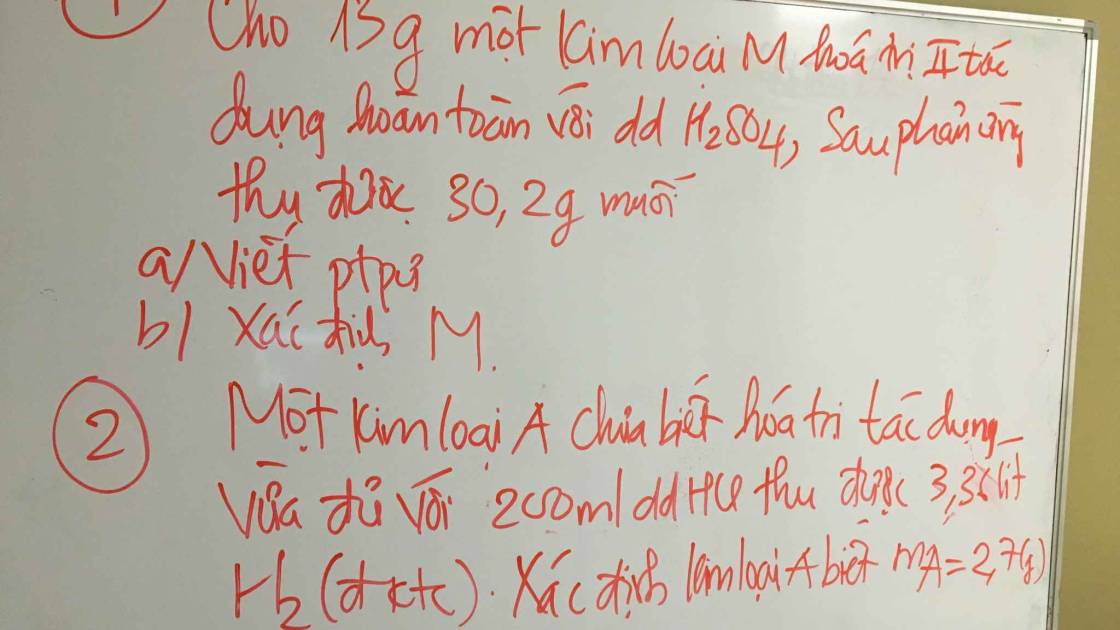 1
Cho 13g một kim loại M hoá trị II tác
dụng hoàn toàn với dd H2SO4, Sau phản ứng
thu được 30,2g muối
a/ Viết ptpư
b/ Xác định M.
2
Một kim loại A chưa biết hóa trị tác dụng
vừa đủ với 200ml dd HCl thu được 3,36 lít
H2 (đktc). Xác định kim loại A biết mA = 2,7(g)